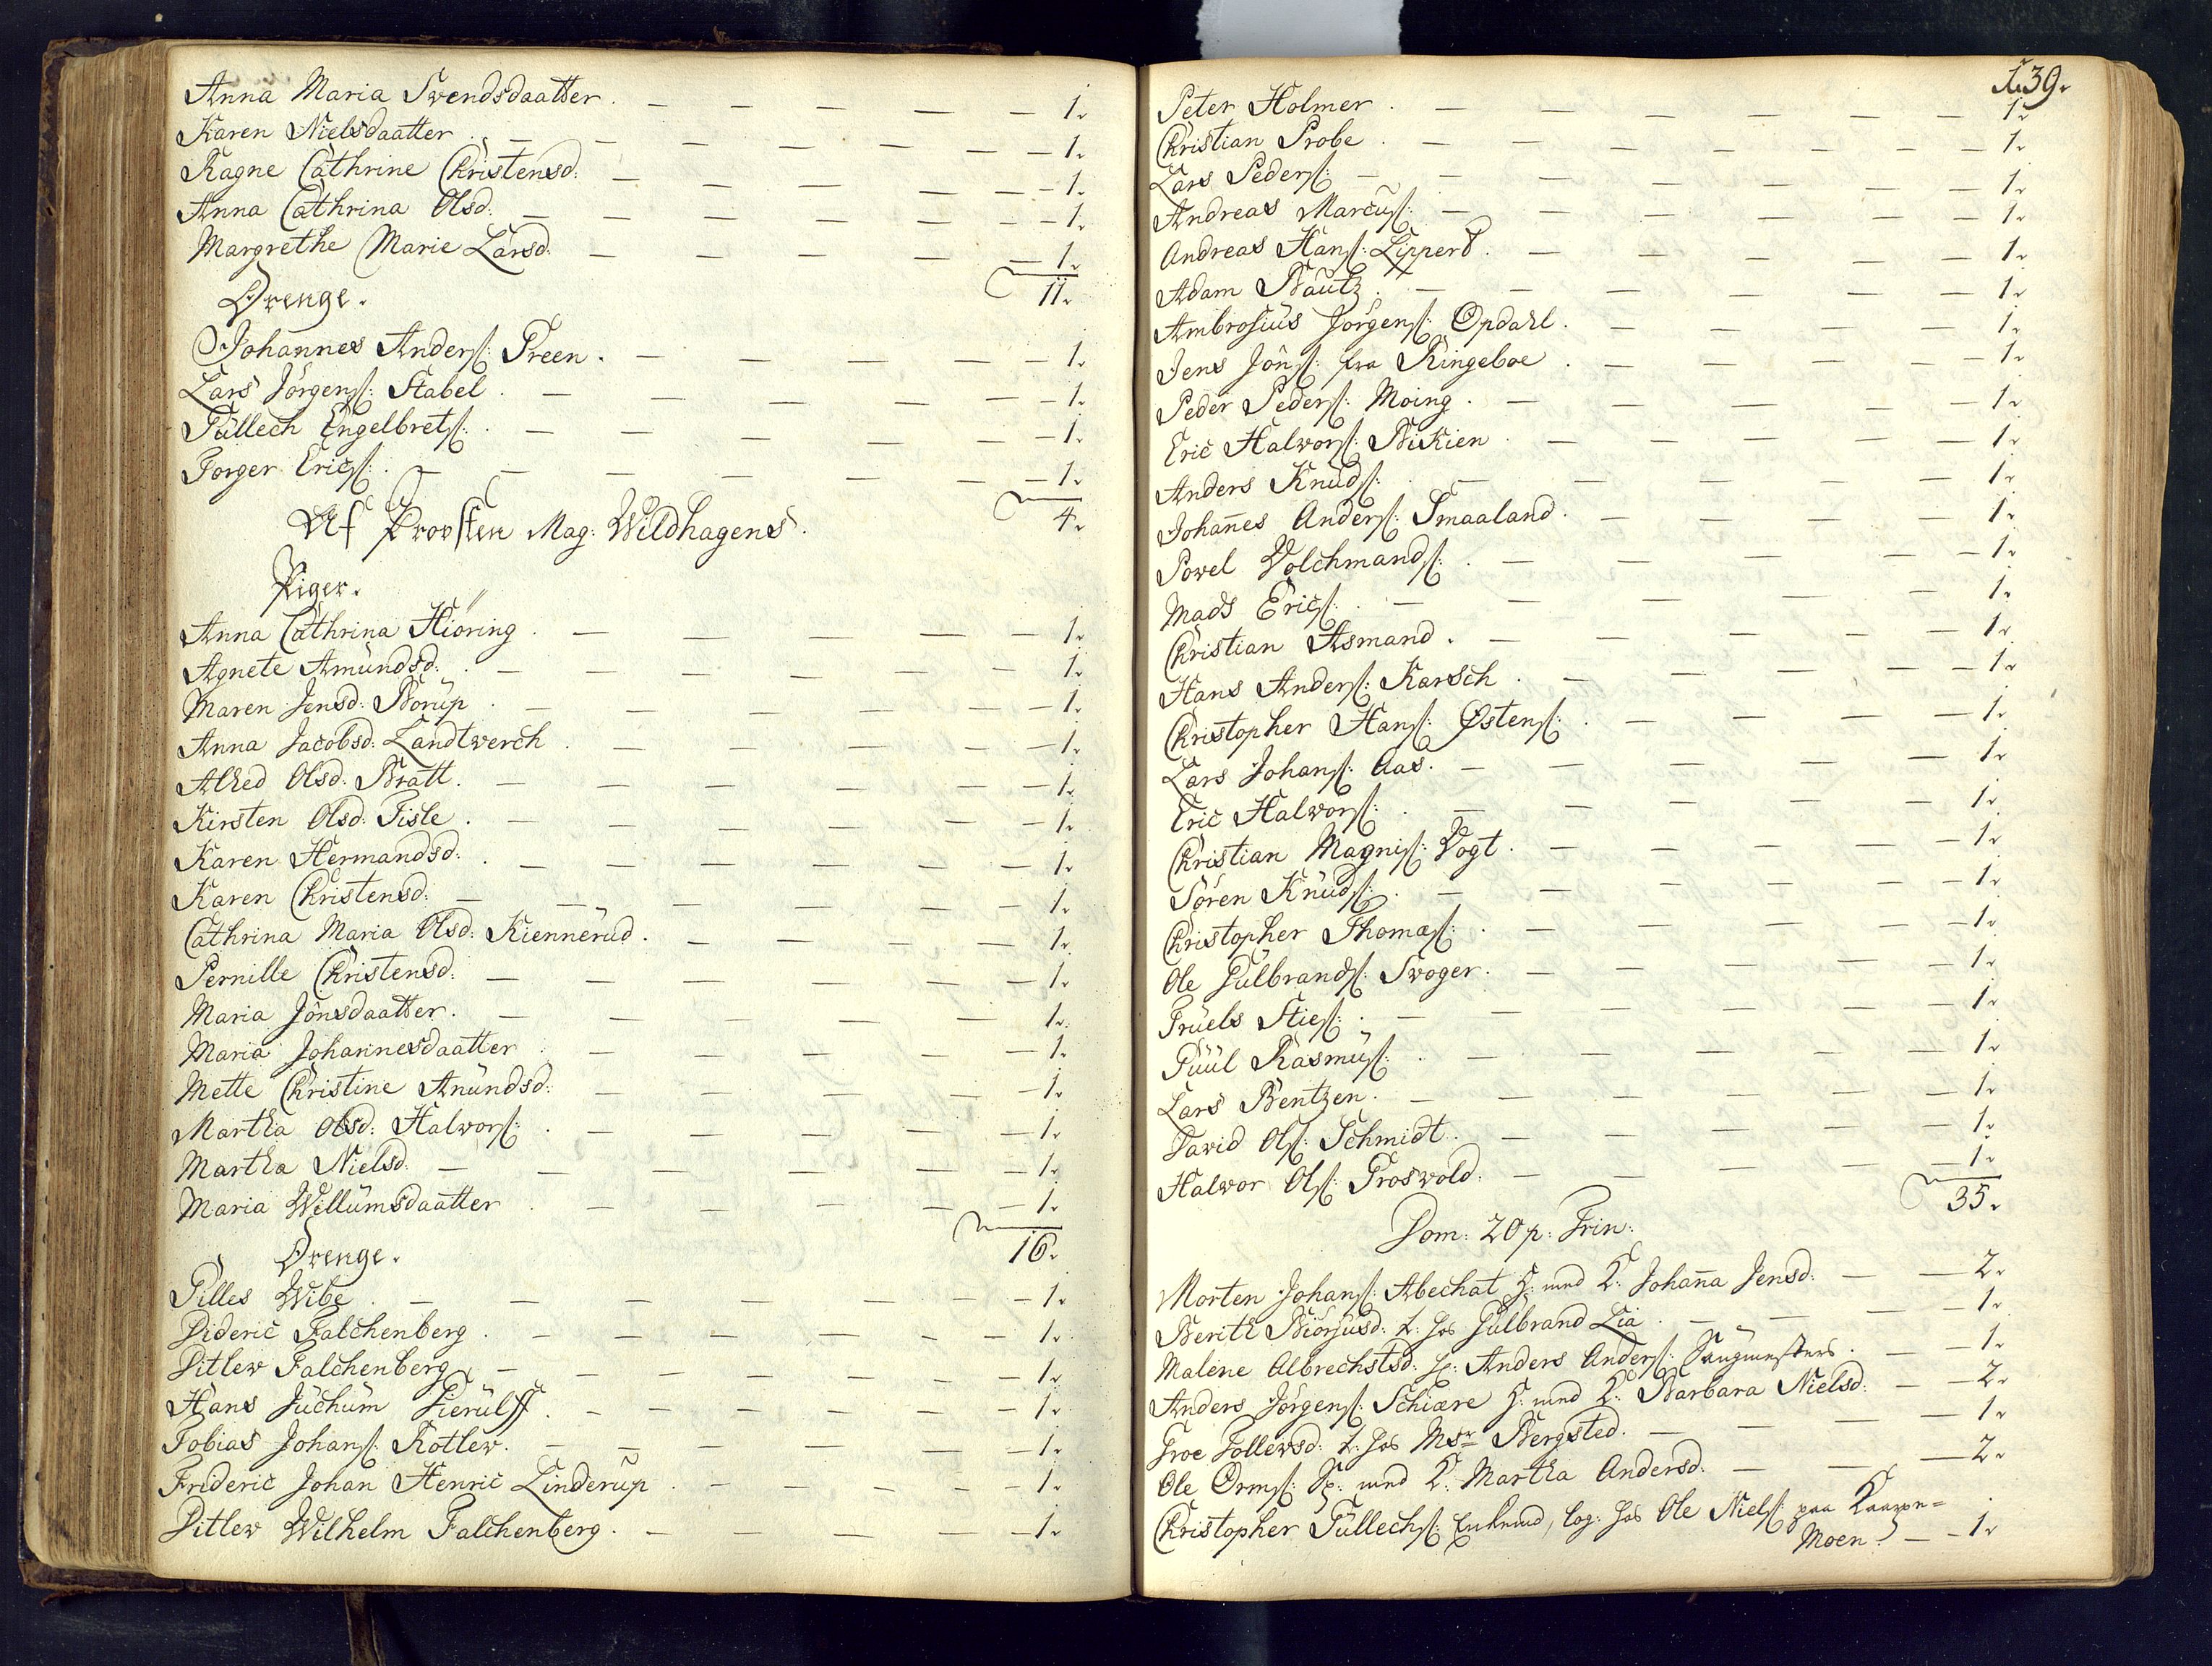 Anna Maria Svendsdaatter. — — — — — 1.
Karen Nielsdaatter. — — — — — — 1.
Ragne Cathrine Christensd: — — — — — 1.
Anna Cathrina Olsd. — — — — — — 1.
Margrethe Marie Larsd. — — — — — 1.
11.
Drenge.
Johannes Anders: Preen. — — — — — 1.
Lars Jörgens: Stabel. — — — — — 1.
Güllech Engelbrets: — — — — — 1.
Torger Erics: — — — — — — 1.
4.
Af Provsten Mag: Wildhagens.
Piger.
Anna Cathrina Hiöring. — — — — — 1.
Agnete Amündsd: — — — — — 1.
Maren Jensd: Borup. — — — — — 1.
Anna Jacobsd: Landtwerch. — — — — 1.
Alhed Olsd. Bratt. — — — — — 1.
Kirsten Olsd: Fisle. — — — — — 1.
Karen Hermandsd: — — — — — 1.
Karen Christensd: — — — — — 1.
Cathrina Maria Olsd: Kiennerüd. — — — 1.
Pernille Christensd: — — — — — 1.
Maria Jönsdaatter. — — — — — 1.
Maria Johannesdaatter — — — — — 1.
Mette Christine Anündsd: — — — — 1.
Martha Olsd: Halvors: — — — — — 1.
Martha Nielsd. — — — — — 1.
Maria Willümsdaatter — — — — — 1.
16.
Drenge.
Gilles Wibe. — — — — — 1.
Dideric Falchenberg. — — — — — 1.
Ditlev Falchenberg. — — — — — 1.
Hans Jüchüm Pierülff. — — — — — 1.
Tobias Johans: Rotlew. — — — — — 1.
Frideric Johan Henric Linderüp. — — — 1.
Ditlev Wilhelm Falchenberg. — — — — 1.
139.
Peter Holmer. — — — — — 1.
Christian Probe. — — — — — 1.
Lars Peders: — — — — — 1.
Andreas Marcus: — — — — — 1.
Andreas Hans: Lippert. — — — — 1.
Adam Bautz. — — — — — 1.
Ambrosius Jörgens: Opdahl. — — — — 1.
Jens Jöns: fra Ringeboe. — — — — 1.
Peder Peders: Moing. — — — — 1.
Eric Halvors: Bikien. — — — — 1.
Anders Knüds: — — — — — 1.
Johannes Anders: Smaaland. — — — — 1.
Povel Volchmands: — — — — 1.
Mads Erics: — — — — — 1.
Christian Asmand. — — — — 1.
Hans Anders: Karsch. — — — — 1.
Christopher Hans: Østens: — — — — 1.
Lars Johans: Aas. — — — — 1.
Eric Halvors: — — — — — 1.
Christian Magnis: Vogt. — — — — 1.
Sören Knüds: — — — — — 1.
Christopher Thomæs: — — — — 1.
Ole Gülbrands: Svoger. — — — — 1.
Trüels Sties: — — — — — 1.
Püül Rasmüs: — — — — — 1.
Lars Bentzen. — — — — — 1.
David Ols: Schmidt. — — — — 1.
Halvor Ols: Groswold. — — — — 1.
35.
Dom: 20 p: Trin:
Morten Johans: Abechat H: med K. Johanna Jensd: — — 2.
Berith Biörnüsd: t: hos Gülbrand Lia. — — — 1.
Malene Albrechstsd: h: Anders Anders: Saugmesters. — — 1.
Anders Jörgens: Schiære H: med K: Barbara Nielsd: — — 2.
Groe Tollevsd: t: hos Msr Bergsted. — — — 1.
Ole Orms: Sp: med K: Martha Andersd. — — — 2.
Christopher Güllechs: Enkemd, log: hos Ole Niels: paa
Moen. — — 1.